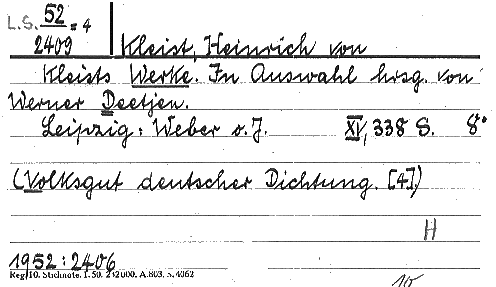 L.S. 52/2409 = 4
Kleist, Heinrich von
Kleists Werke. In Auswahl hrsg. von
Werner Deetjen.
Leipzig: Weber o. J. XV, 338 S. 8°
(Volksgut deutscher Dichtung. [4])
H
1952 : 2406
Reg/10. Stichnote. I. 50. 212000. A.803. S. 4062